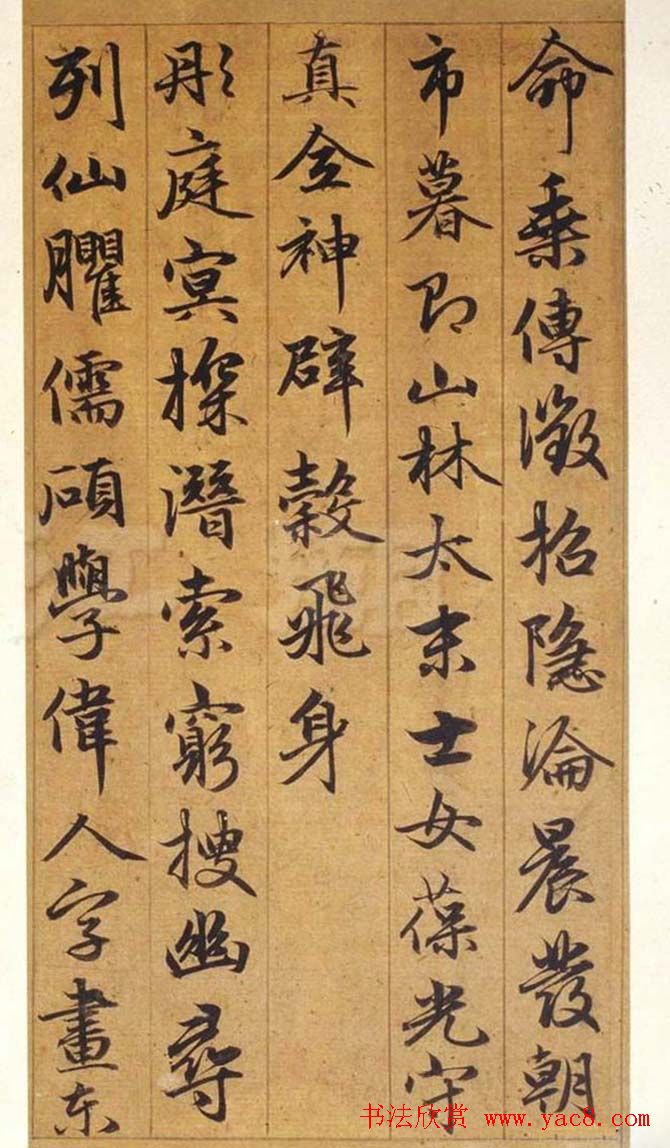 命乘傳徵招隱淪晨發朝
市暮即山林太末士女葆光守
真全神辟穀飛身
彤庭冥探潛索窮搜幽尋
列仙臞儒碩學偉人字畫東
书法欣赏 www.yac8.com